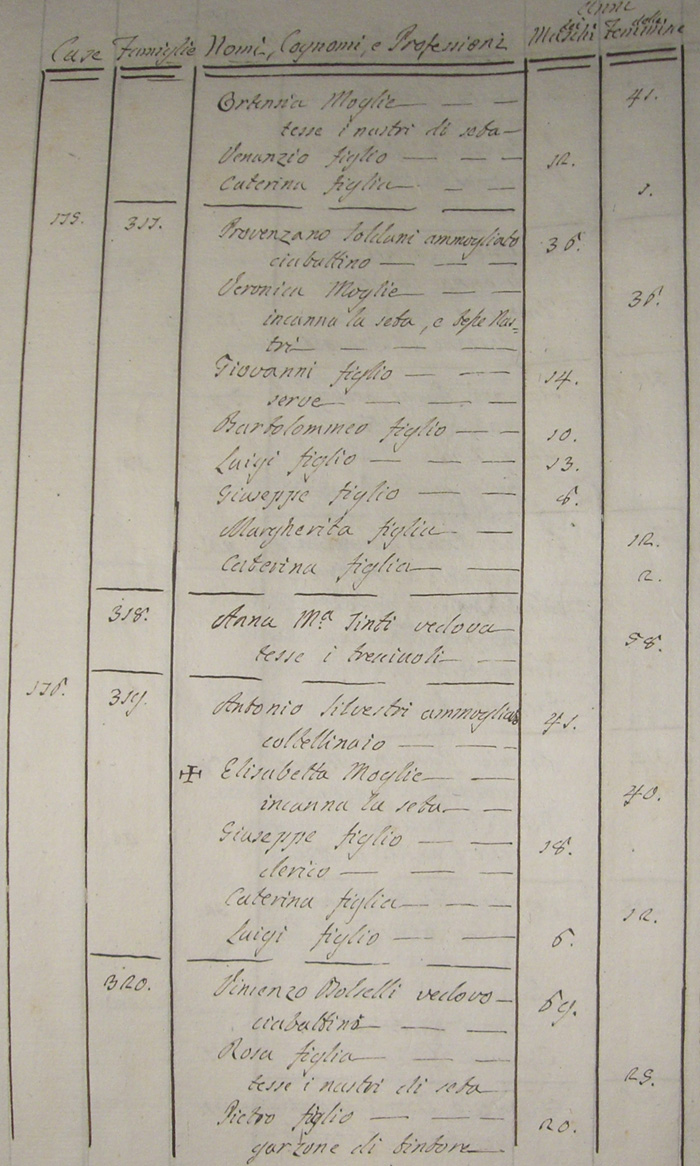 Anni
Case Famiglie Nomi, Cognomi, e Professioni dei Maschi delle Femmine
Ortensia Moglie — — — 41.
tesse i nastri di seta —
Venanzio figlio — — — 12.
Caterina figlia — — — 1.
175. 317. Provenzano Soldani ammogliato 36.
ciabattino — — —
Veronica Moglie — — — 36.
incanna la seta, e tesse Nas=
tri — — —
Giovanni figlio — — — 14.
serve — — —
Bartolommeo figlio — — 10.
Luigi figlio — — — 13.
Giuseppe figlio — — — 6.
Margherita figlia — — 12.
Caterina figlia — — 2.
318. Anna Mª Tinti vedova 58.
tesse i trecciuoli — —
176. 319. Antonio Silvestri ammogliato 41.
coltellinaio — — —
✠ Elisabetta Moglie — — 40.
incanna la seta — —
Giuseppe figlio — — 18.
clerico — — —
Caterina figlia — — — 12.
Luigi figlio — — 6.
320. Vincenzo Bolselli vedovo — 69.
ciabattino — — —
Rosa figlia — — —
tesse i nastri di seta 25.
Pietro figlio — — — 20.
garzone di tintore —